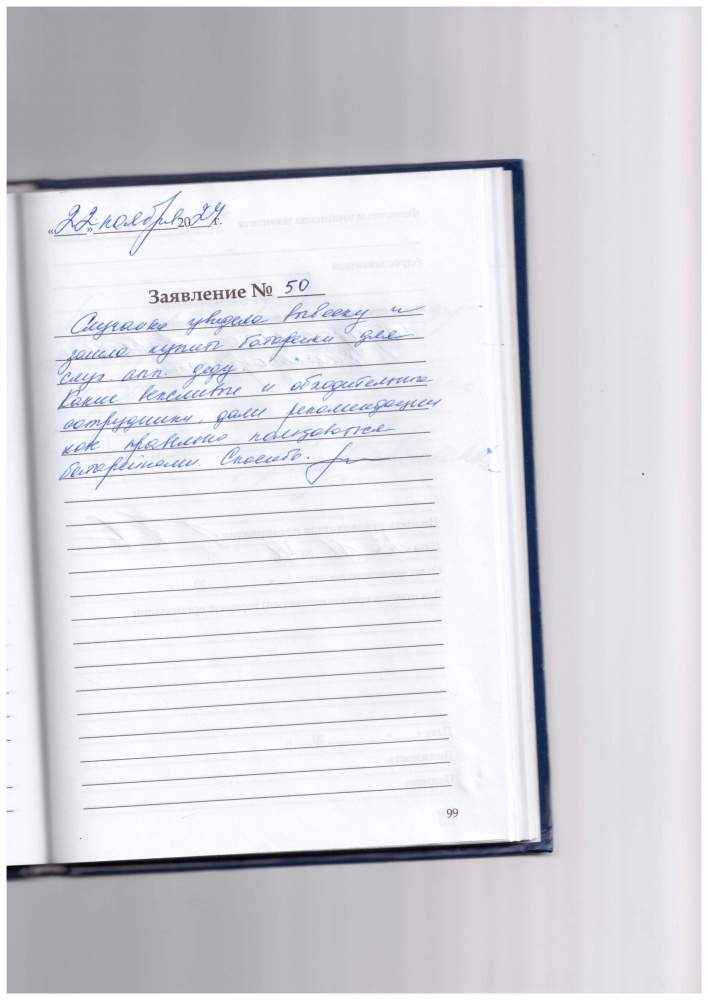 «22» ноября 2024 г.
Заявление № 50
Случайно увидела вывеску и
зашла купить батарейки для
слух апп. деду.
Какие вежливые и обходительные
сотрудники, дали рекомендации
как правильно пользоваться
батарейками. Спасибо.
99